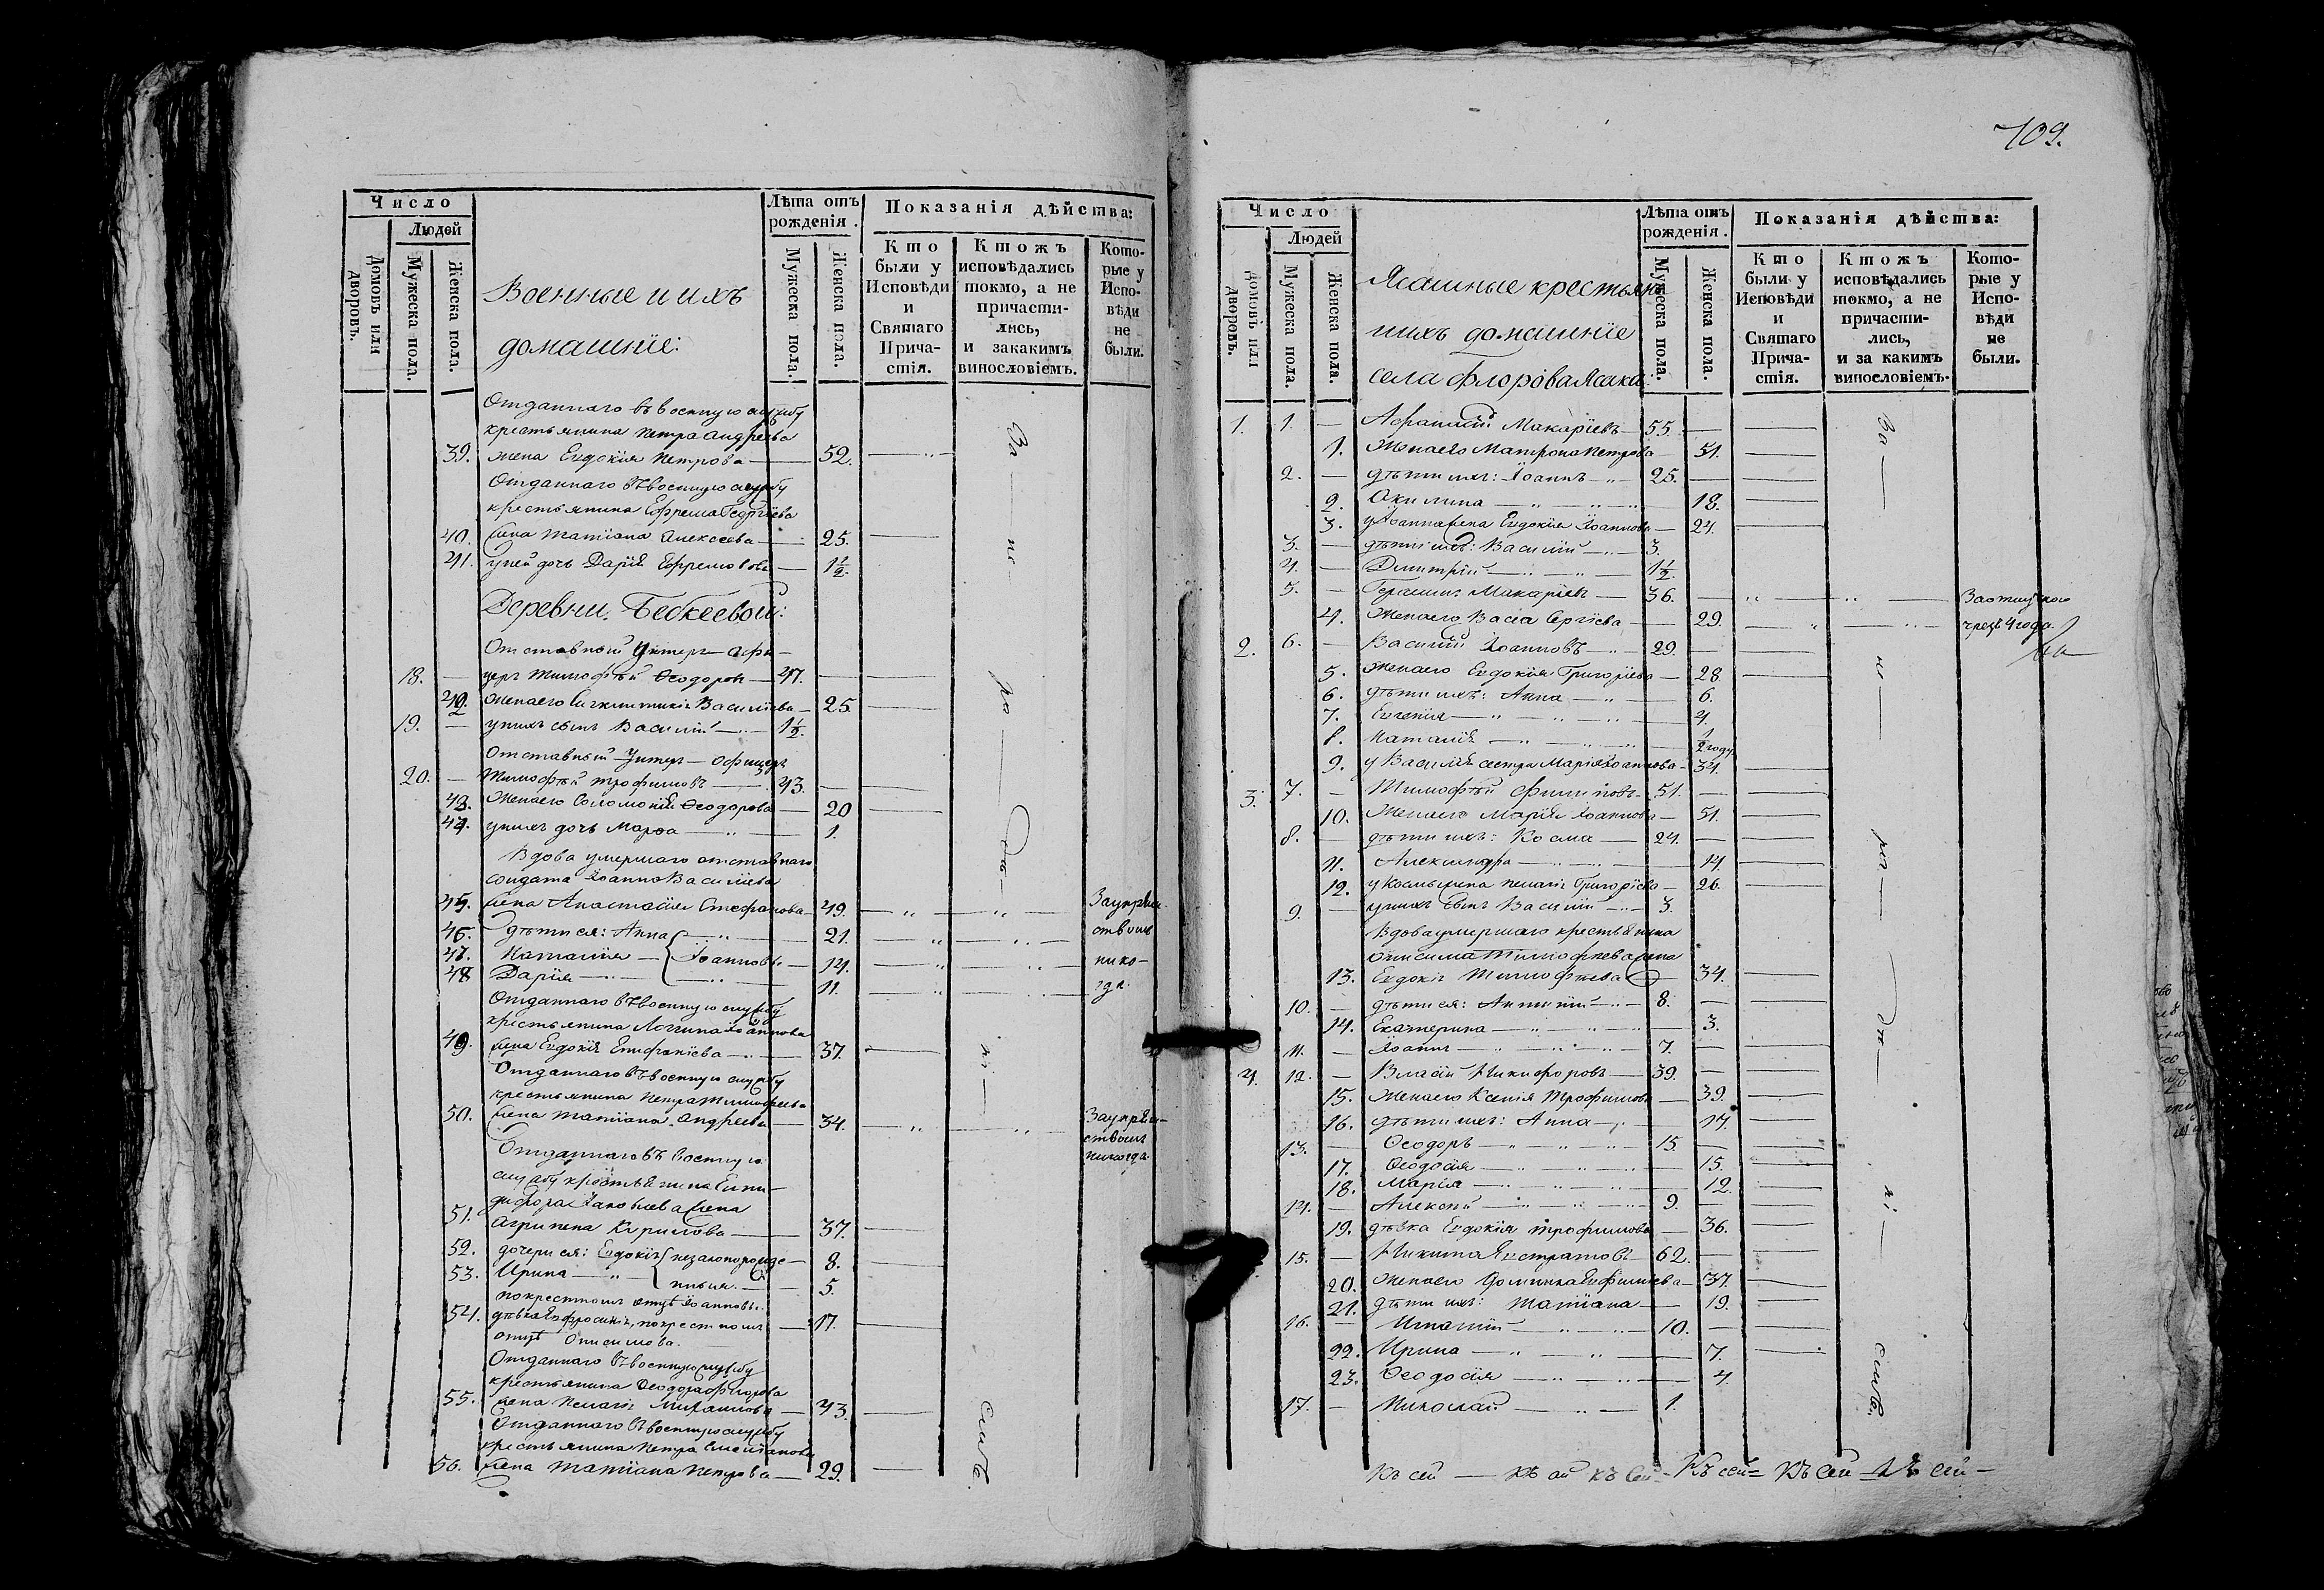 Число
Людей
Домовъ или дворовъ.
Мужеска пола.
Женска пола.
Военные и ихъ
домашніе:
Лѣта отъ
рожденія.
Мужеска пола.
Женска пола.
Показанія дѣйства:
Кто были у Исповѣди и Святаго Причастія.
Ктожъ исповѣдались токмо, а не причастились, и закакимъ винословіемъ.
Которые у Исповѣди не были.
Отданнаго въ военную службу
крестьянина Петра Андреева
39. жена Евдокія Петрова — 52.
Отданнаго въ военную службу
крестьянина Ефрема Георгіева
40. жена Татіана Алексеева — 25.
41. у ней дочь Дарія Ефремова — 1½.
Деревни Бебкеевой:
Отставный Унтеръ-Офи-
18. — церъ Тимофѣй Ѳеодоровъ — 47.
42. Жена его Васильева — 25.
19. — у нихъ сынъ Василій — 1½.
Отставный Унтеръ-Офицеръ
20. — Тимофѣй Трофимовъ — 43.
43. Жена его Соломонія Ѳеодорова — 20
44. у нихъ дочь Марѳа — 1.
Вдова умершаго отставнаго
солдата Іоанна Василіева
45. жена Анастасія Стефанова — 49. За упрям
46. дѣти ея: Анна — 21. ствомъ
47. Наталія — Іоанновы — 14. нико-
48 Дарія — 11. гда.
Отданнаго въ военную службу
крестьянина Логгина Іоаннова
49. жена Евдокія Епифаніева — 37.
Отданнаго въ военную службу
крестьянина Петра Тимофеева
50. жена Татіана Андреева — 34. За упрям-
ствомъ
никогда.
Отданнаго въ военную
службу крестьянина Епи-
Яковлева жена
51. Агрипена Кирилова — 37.
52. дочери ея: Евдокія незаконорожде- 8.
53. Ирина — нныя. — 5.
по крестномъ отцѣ Іоанновы.
54. дѣвка Ефросинія, по крестномъ — 17.
отцѣ Онисимова.
Отданнаго въ военную службу
крестьянина Ѳеодора Флорова
55. жена Пелагія Михаилова — 43.
Отданнаго въ военную службу
крестьянина Петра Степанова
56. жена Татіана Петрова — 29.
За — не — ро — до — ні — емъ.
109.
Число
Людей
домовъ или дворовъ.
Мужеска пола.
Женска пола.
Ясашные крестьяне
и ихъ домашніе
села Флорова Ясака:
Лѣта отъ
рожденія.
Мужеска пола.
Женска пола.
Показанія дѣйства:
Кто были у Исповѣди и Святаго Причастія.
Ктожъ исповѣдались токмо, а не причастились, и за какимъ винословіемъ.
Которые у Исповѣди не были.
1. 1. — Макаріевъ — 55.
1. Жена его Матрона Петрова — 51.
2. — дѣти ихъ: Іоаннъ — 25.
2. Акилина — 18.
3. у Іоанна жена Евдокія Іоаннова — 24.
3. — дѣти ихъ: Василій — 3.
4. — Димитрій — 1½.
5. — Герасимъ Макаріевъ — 36. За отлучкою
4. Жена его Васса Сергіева — 29. чрезъ 4 года.
2. 6. — Василій Іоанновъ — 29.
5. Жена его Евдокія Григоріева — 28.
6. дѣти ихъ: Анна — 6.
7. Евгенія — 4.
8. Наталія — ½ году
9. у Василія сестра Марія Іоаннова — 34.
3. 7. — Тимофѣй Филиповъ — 51.
10. Жена его Марія Іоаннова — 51.
8. — дѣти ихъ: Косма — 24.
11. Александра — 14.
12. у Космы жена Пелагія Григоріева — 26.
9. — у нихъ сынъ Василій — 3.
Вдова умершаго крестьянина
Онисима Тимофеева жена
13. Евдокія Тимофеева — 34.
10. — дѣти ея: — 8.
14. Екатерина — 3.
11. — Іоаннъ — 7.
4. 12. — Власій Никифоровъ — 39.
15. Жена его Ксенія Трофимова — 39.
16. дѣти ихъ: Анна — 17.
13. Ѳеодоръ — 15.
17. Ѳеодосія — 15.
18. Марія — 12.
14. — Алексѣй — 9.
19. дѣвка Евдокія Трофимова — 36.
15. — Никита Евстратовъ — 62.
20. Жена его Домника — 37.
21. дѣти ихъ: Татіана — 19.
16. Игнатій — 10.
22. Ирина — 7.
23. Ѳеодосія — 4.
17. — Николай — 1.
За — не — ро — до — ні — емъ.
Къ сей — къ сей къ сей — Къ сей = Къ сей — Къ сей —